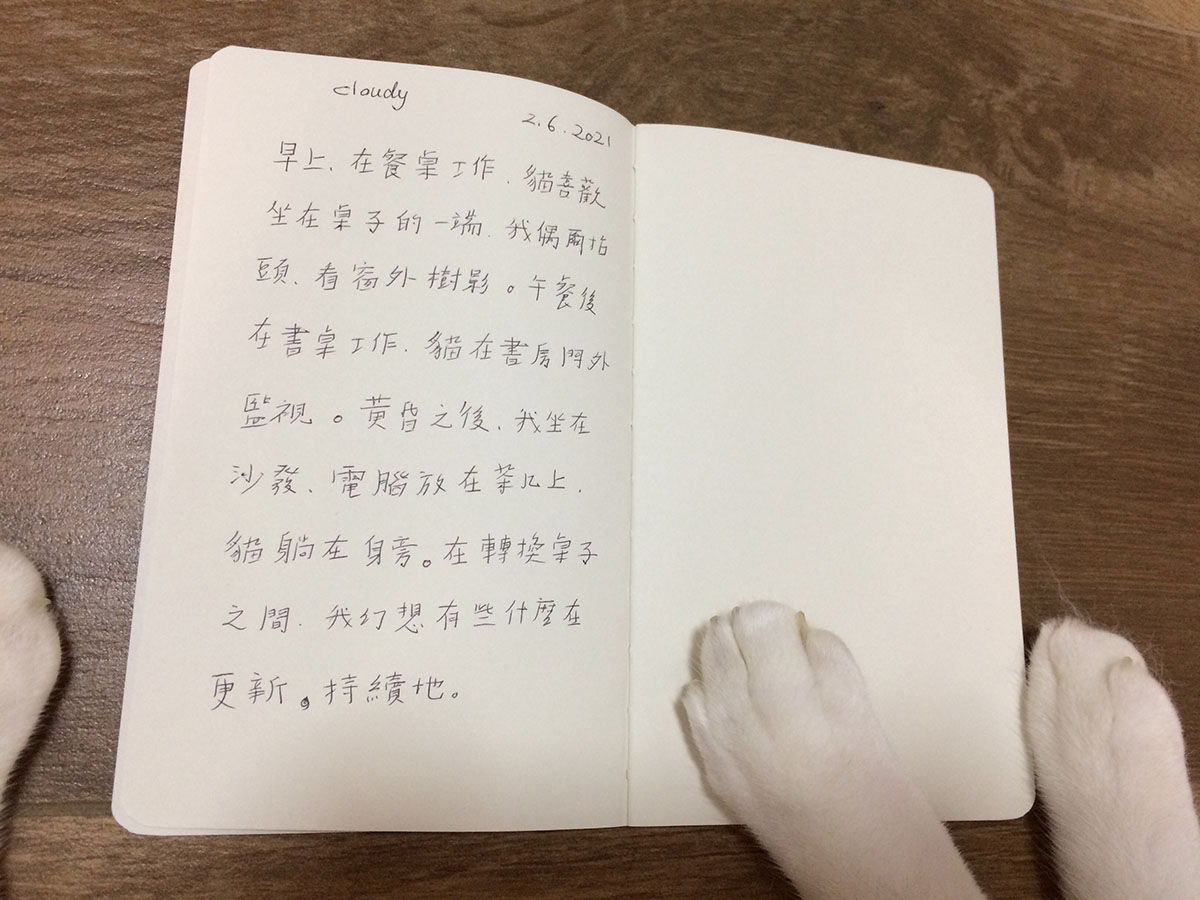 cloudy
2.6.2021
早上、在餐桌工作、貓喜歡
坐在桌子的一端、我偶爾抬
頭、看窗外樹影。午餐後
在書桌工作、貓在書房門外
監視。黃昏之後、我坐在
沙發、電腦放在茶几上、
貓躺在身旁。在轉換桌子
之間、我幻想有些什麼在
更新。持續地。